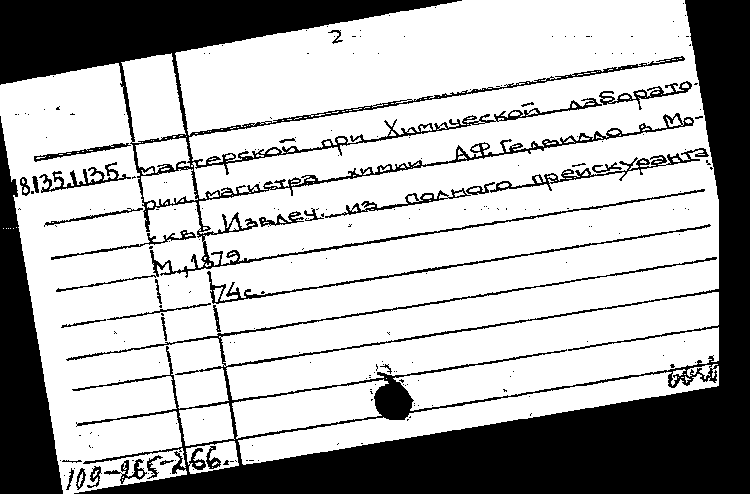 2
18.135.1.135. мастерской при Химической лаборато-
рии магистра химии А.Ф. Гедвилло в Мо-
скве. Извлеч. из полного прейскуранта
М., 1879.
74 с.
109-265-266.